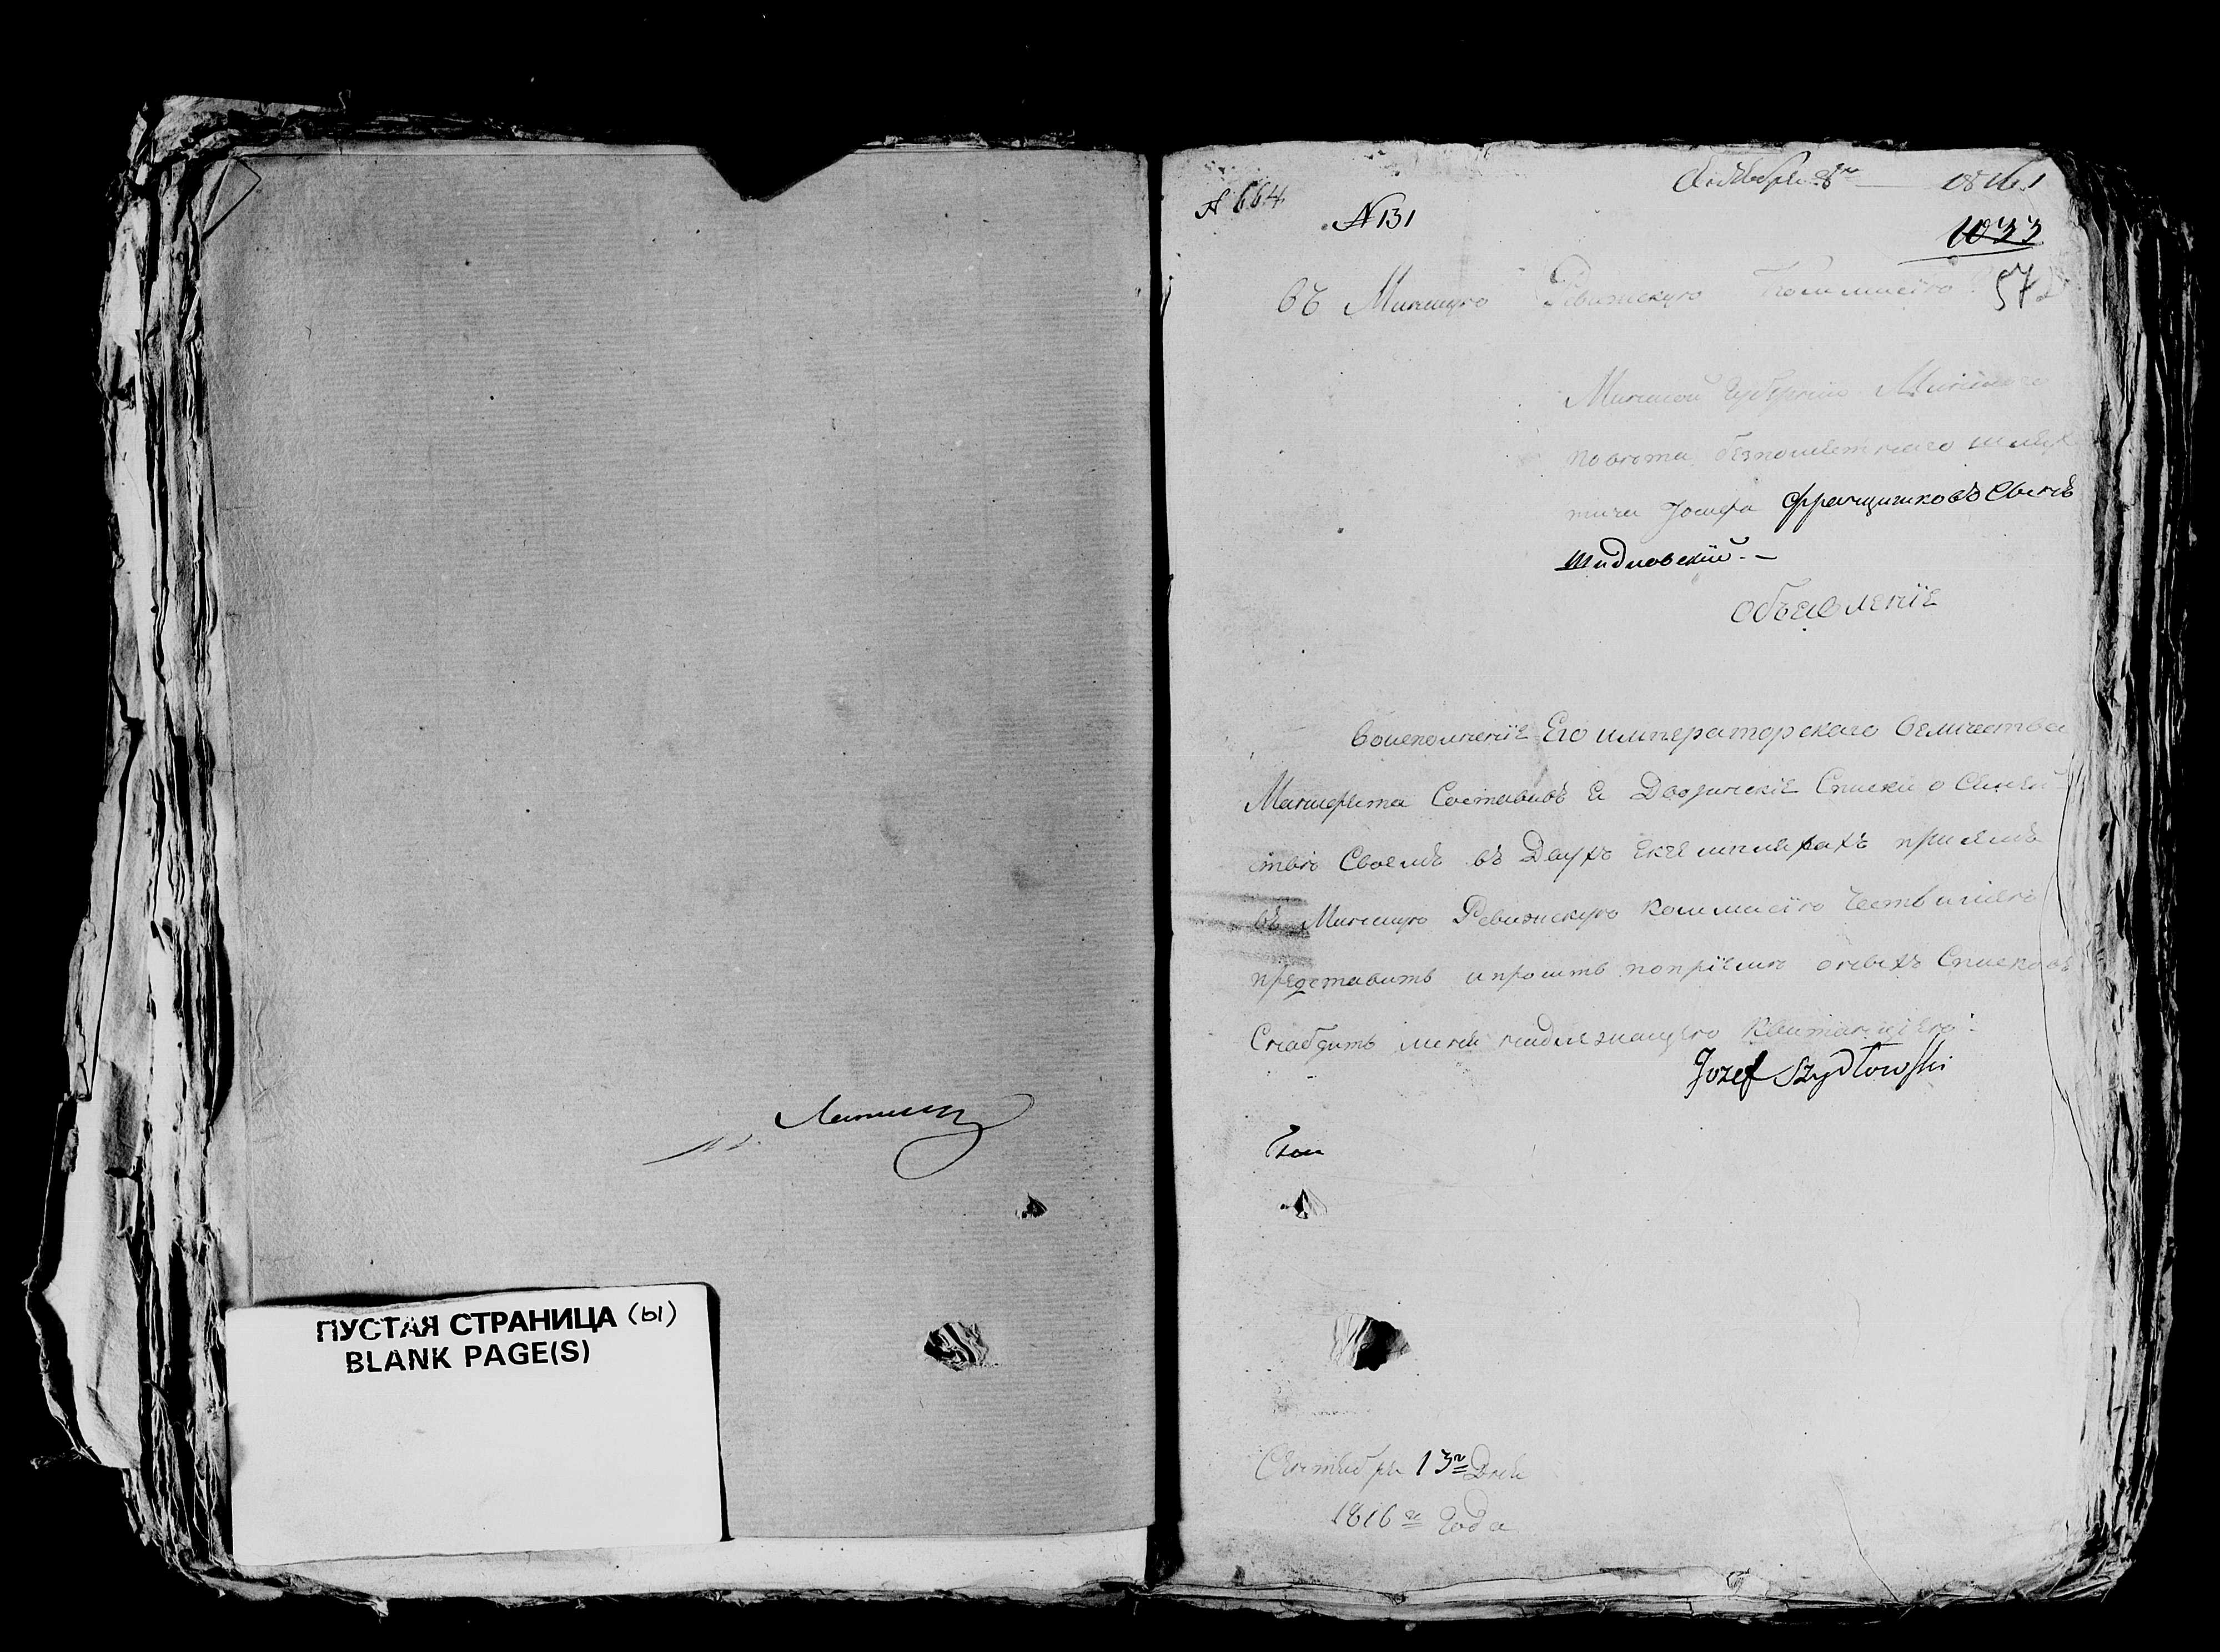 ПУСТАЯ СТРАНИЦА (ы)
BLANK PAGE(S)
№ 664
№ 131
Октября 8го 1816
1033
572
въ Минскую Ревизскую Коммисїю
Минской Губернїи Минскаго
повета безпоместнаго шлях
тича Jосифа Францишковъ Сынъ
Шидловскїй. —
Объевленїе
Воисполненїе Его императорскаго величества
Манифеста Составивъ я Дворянскїе Списки о Семей
стве Своемъ въ Двухъ екземплярахъ при семъ
въ Минскую Ревизскую Коммисїю честь имею
представить и просить попрїеме оныхъ Списковъ
Снабдить меня надлежащею Квитанцїею.
Jozef Szydłowski
Октебря 13го Дня
1816го Года